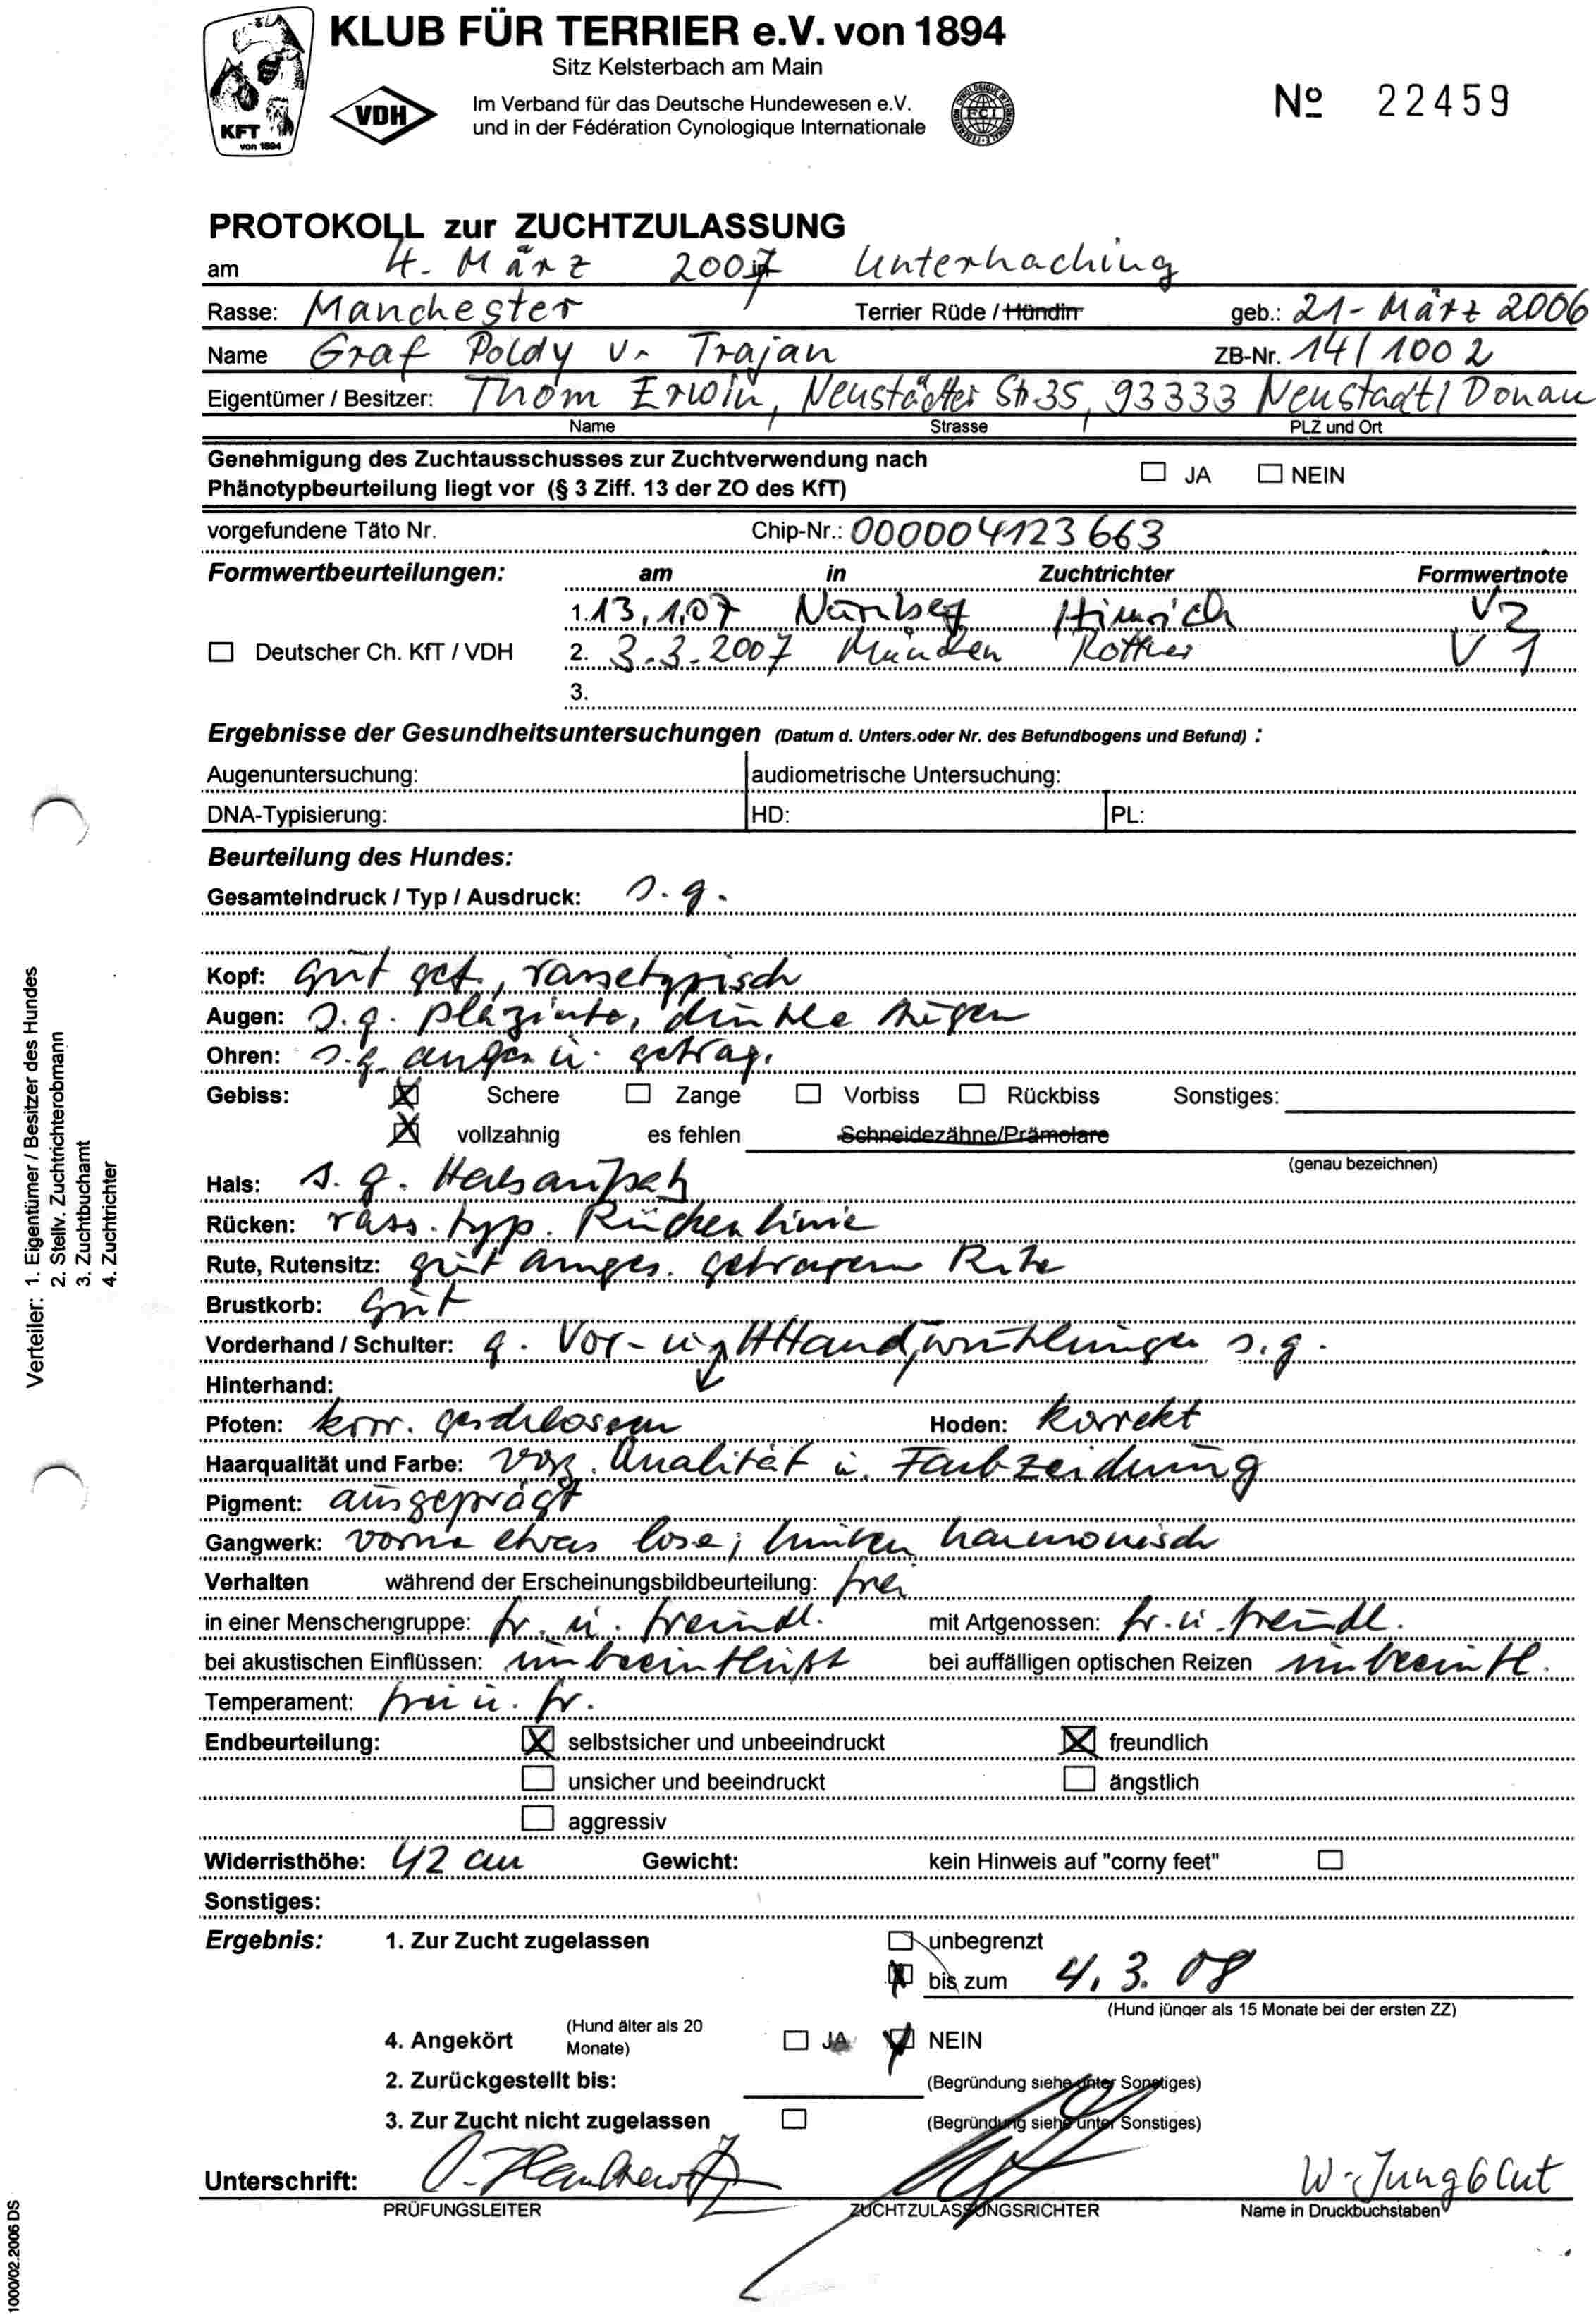 KLUB FÜR TERRIER e.V. von 1894
Sitz Kelsterbach am Main
Im Verband für das Deutsche Hundewesen e.V.
und in der Fédération Cynologique Internationale
KFT
von 1894
VDH
FCI
No 22459
PROTOKOLL zur ZUCHTZULASSUNG
am 4. März 2007 Unterhaching
Rasse: Manchester Terrier Rüde / Hündin geb.: 21. März 2006
Name Graf Poldy v. Trajan ZB-Nr. 14/1002
Eigentümer / Besitzer: Thom Erwin, Neustädter Str. 35, 93333 Neustadt/Donau
Name Strasse PLZ und Ort
Genehmigung des Zuchtausschusses zur Zuchtverwendung nach
Phänotypbeurteilung liegt vor (§ 3 Ziff. 13 der ZO des KfT) JA NEIN
vorgefundene Täto Nr. Chip-Nr.: 000004123663
Formwertbeurteilungen: am in Zuchtrichter Formwertnote
1. 13.1.07 Nürnberg Hinrich V2
Deutscher Ch. KfT / VDH 2. 3.3.2007 München V1
3.
Ergebnisse der Gesundheitsuntersuchungen (Datum d. Unters.oder Nr. des Befundbogens und Befund) :
Augenuntersuchung: audiometrische Untersuchung:
DNA-Typisierung: HD: PL:
Beurteilung des Hundes:
Gesamteindruck / Typ / Ausdruck: s.g.
Kopf: gut get., rassetypisch
Augen: s.g. plazierte, dunkle Augen
Ohren: s.g. anges. u. getrag.
Gebiss: Schere Zange Vorbiss Rückbiss Sonstiges:
vollzahnig es fehlen Schneidezähne/Prämolare
(genau bezeichnen)
Hals: s.g. Halsaufsatz
Rücken: rass.typ. Rückenlinie
Rute, Rutensitz: gut anges. getragene Rute
Brustkorb: gut
Vorderhand / Schulter: g. Vor- u. HHand, s.g.
Hinterhand:
Pfoten: korr. geschlossen Hoden: korrekt
Haarqualität und Farbe: vorz. Qualität u. Farbzeichnung
Pigment: ausgeprägt
Gangwerk: vorne etwas lose; hinten harmonisch
Verhalten während der Erscheinungsbildbeurteilung: frei
in einer Menschengruppe: fr. u. freundl. mit Artgenossen: fr. u. freundl.
bei akustischen Einflüssen: unbeeinflußt bei auffälligen optischen Reizen unbeeinfl.
Temperament: frei u. fr.
Endbeurteilung: selbstsicher und unbeeindruckt freundlich
unsicher und beeindruckt ängstlich
aggressiv
Widerristhöhe: 42 cm Gewicht: kein Hinweis auf "corny feet"
Sonstiges:
Ergebnis: 1. Zur Zucht zugelassen unbegrenzt
bis zum 4.3.08
(Hund jünger als 15 Monate bei der ersten ZZ)
4. Angekört (Hund älter als 20 Monate) JA NEIN
2. Zurückgestellt bis: (Begründung siehe unter Sonstiges)
3. Zur Zucht nicht zugelassen (Begründung siehe unter Sonstiges)
Unterschrift: W. Jungblut
PRÜFUNGSLEITER ZUCHTZULASSUNGSRICHTER Name in Druckbuchstaben
Verteiler: 1. Eigentümer / Besitzer des Hundes
2. Stellv. Zuchtrichterobmann
3. Zuchtbuchamt
4. Zuchtrichter
1000/02.2006 DS